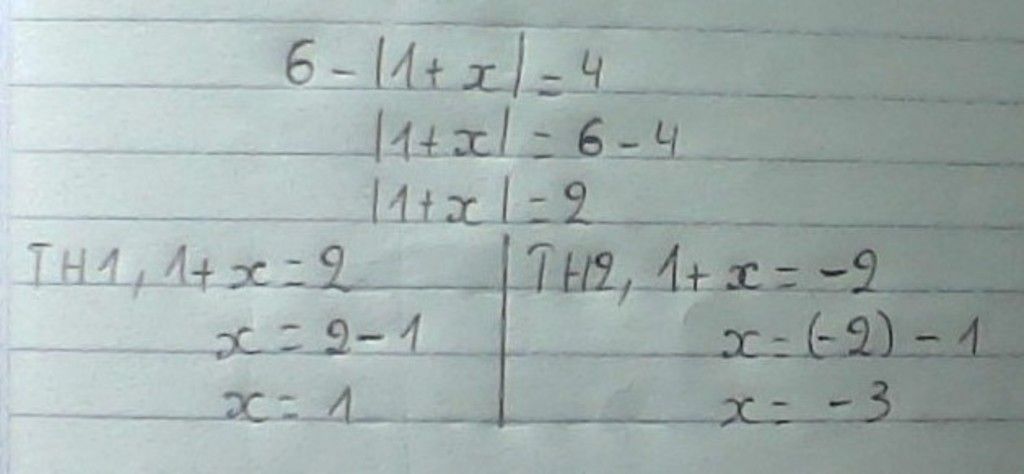 6 - |1 + x| = 4
|1 + x| = 6 - 4
|1 + x| = 2
TH1, 1 + x = 2
x = 2 - 1
x = 1
TH2, 1 + x = -2
x = (-2) - 1
x = -3